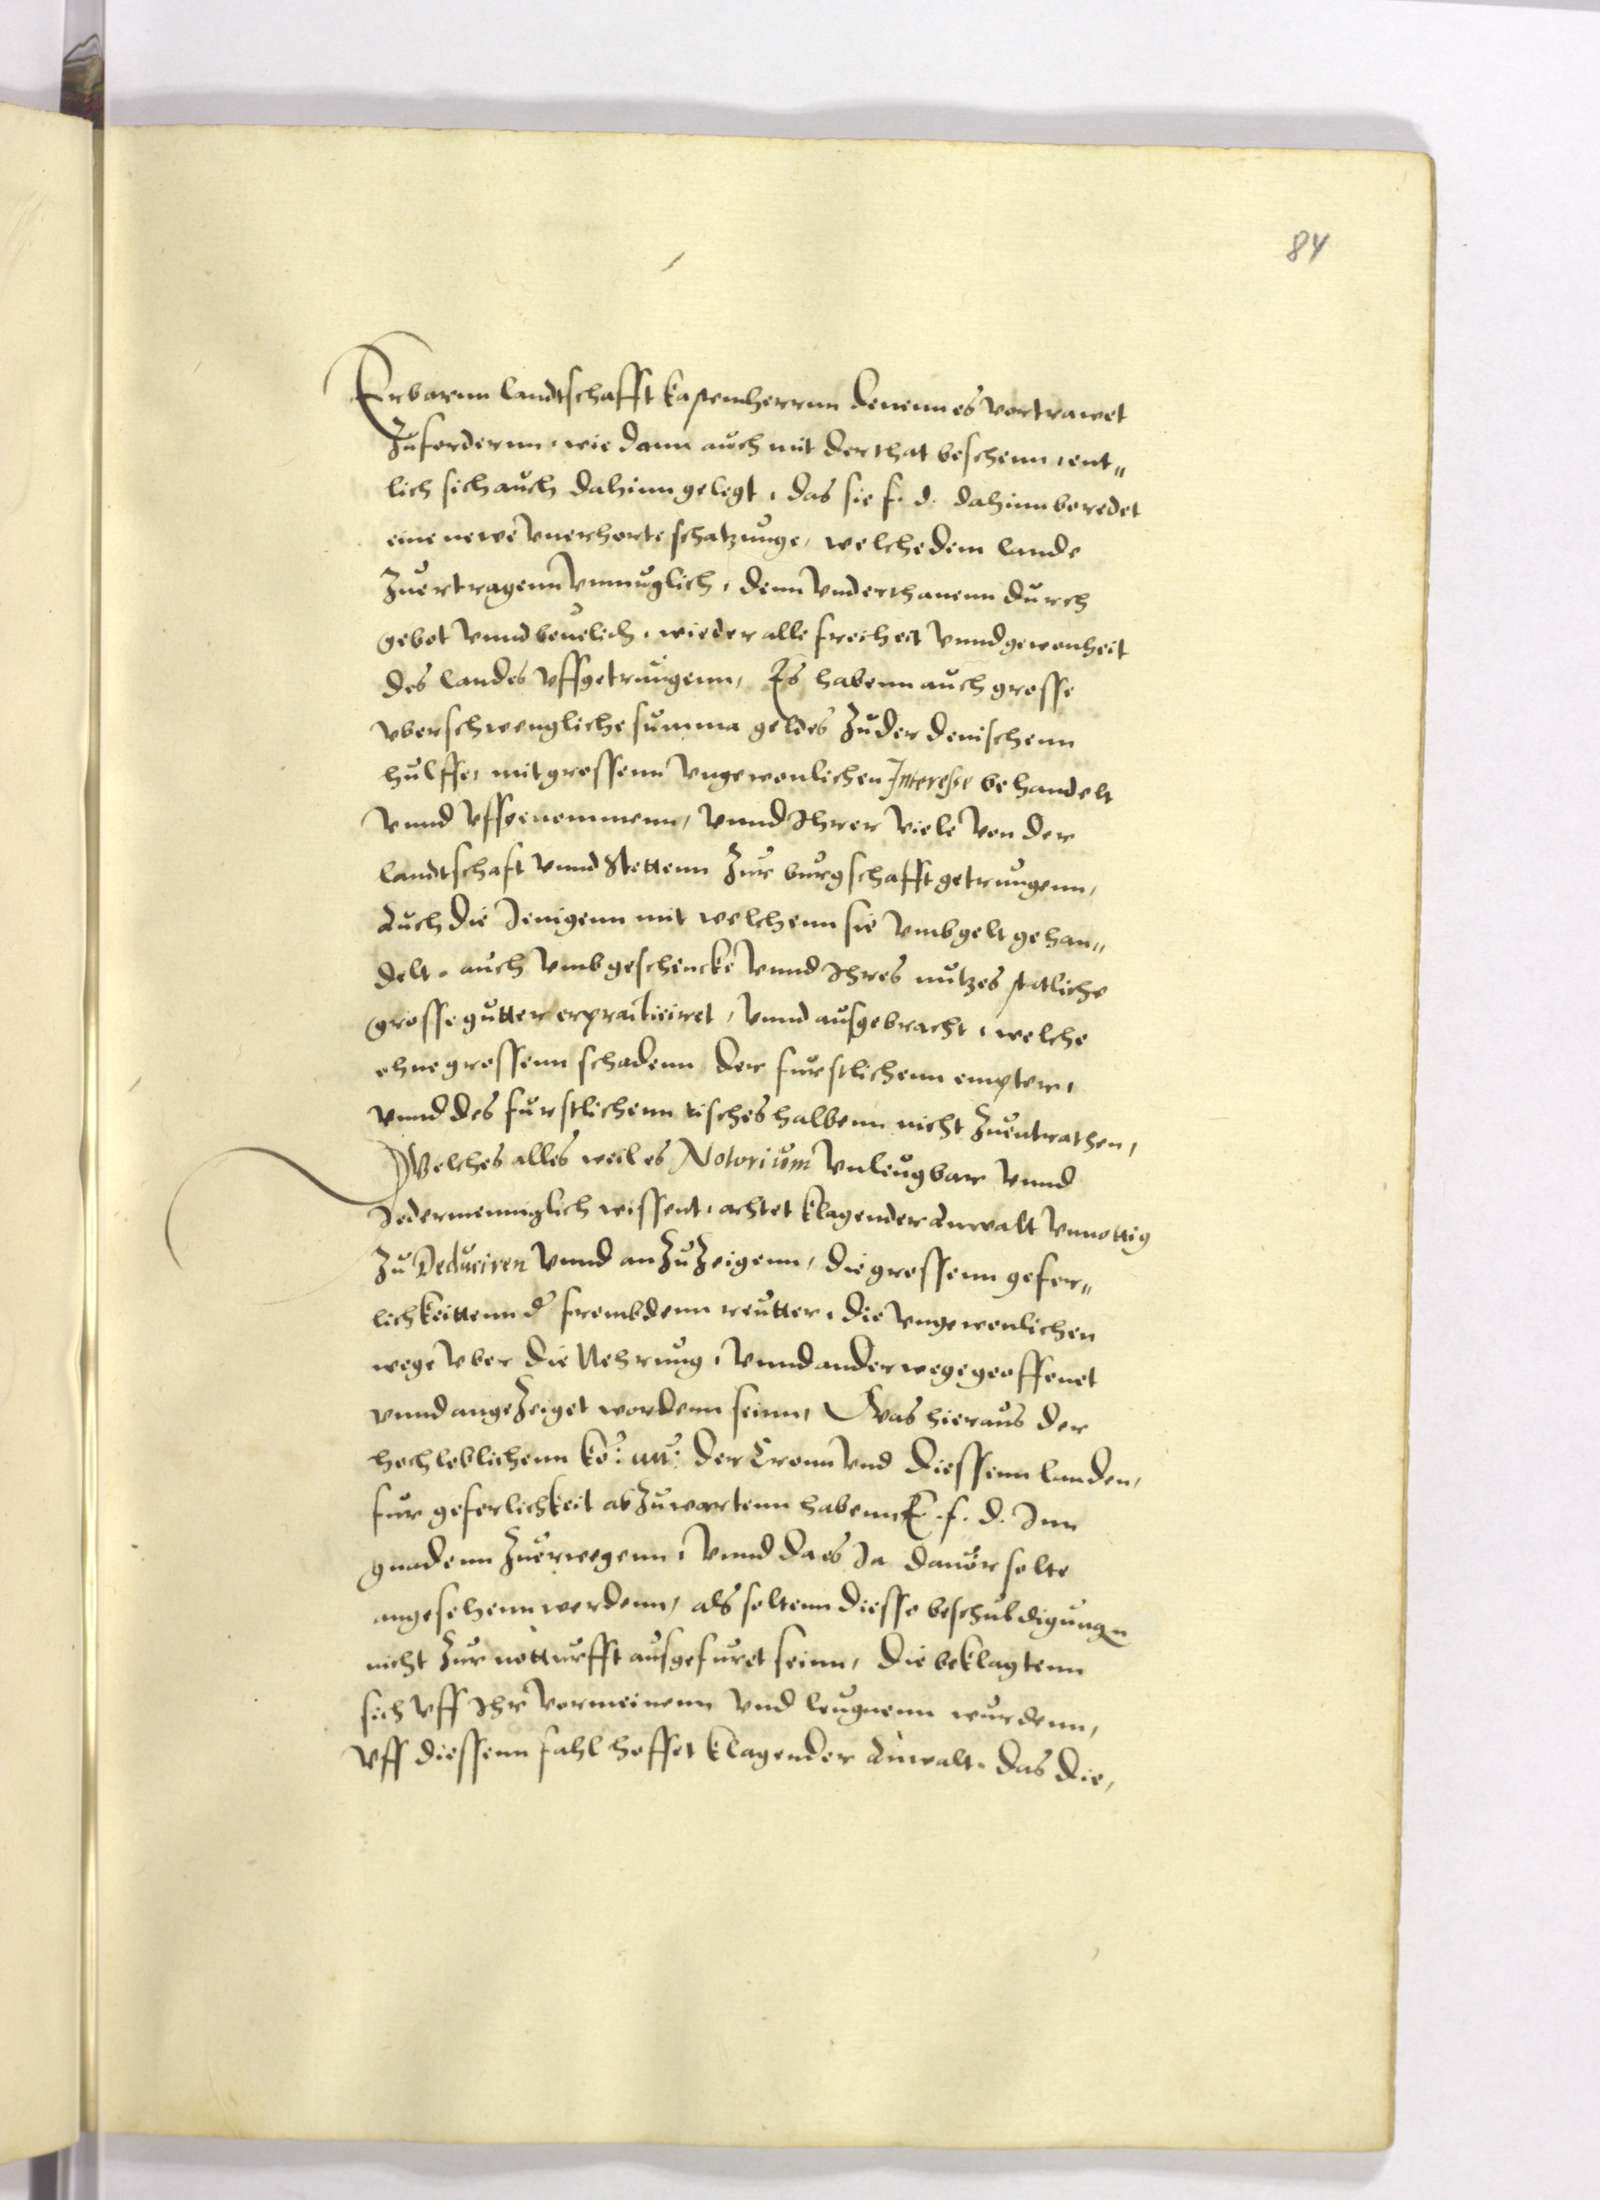 84
Erbarnn landtschafft kastennherrnn denenn es vortrawet
Zufordernn, wie dann auch mit der that beschenn, ent„
lich sich auch dahinn gelegt, das sie f. d. dahinn beredet
eine newe vnerhorte schatzunge, welche dem lande
Zuertragenn vnmuglich, denn vnderthanenn durch
gebot vnnd beuelich, wieder alle freiheit vnnd gewonheit
des landes vffgetrungenn, Es habenn auch grosse
vberschwengliche summa geldes Zu der denischenn
hulffe, mit grossenn vngewonlichen Interesse behandelt
vnnd vffgenommenn, vnnd Ihrer viele von der
landtschaft vnnd Stettenn Zur burgschafft getrungenn,
Auch die Jenigenn mit welchenn sie vmb gelt gehan„
delt, auch vmb geschencke vnnd Ihres nutzes statliche
grosse gutter erpracticiret, vnnd ausgebracht, welche
ohne grossenn schadenn der furstlichenn empter,
vnnd des furstlichenn tisches halbenn nicht Zuentrathen,
Welches alles weil es Notorium vnleugbar vnnd
Jedermenniglich wissent, achtet klagender Anwalt vnnottig
Zu Deduciren vnnd anZuZeigenn, die grossenn gefer„
lichkeittenn d' frembdenn reutter, die vngewonlichen
wege vber die Nehrung, vnnd ander wege geoffenet
vnnd angeZeiget wordenn seinn, Was hieraus der
hochloblichenn ko: M: der Cronn vnd diessenn landen,
fur geferlichkeit abZuwartenn habenn E. f. d. Inn
gnadenn Zuerwegenn, vnnd da es Ja dauor solte
angesehenn werdenn, als soltenn diesse beschuldigungen
nicht Zur notturfft ausgefuret seinn, die beklagtenn
sich vff Ihr vormeinenn vnd leugnenn wurdenn,
vff diessenn fahl hoffet klagender Anwalt, das die,